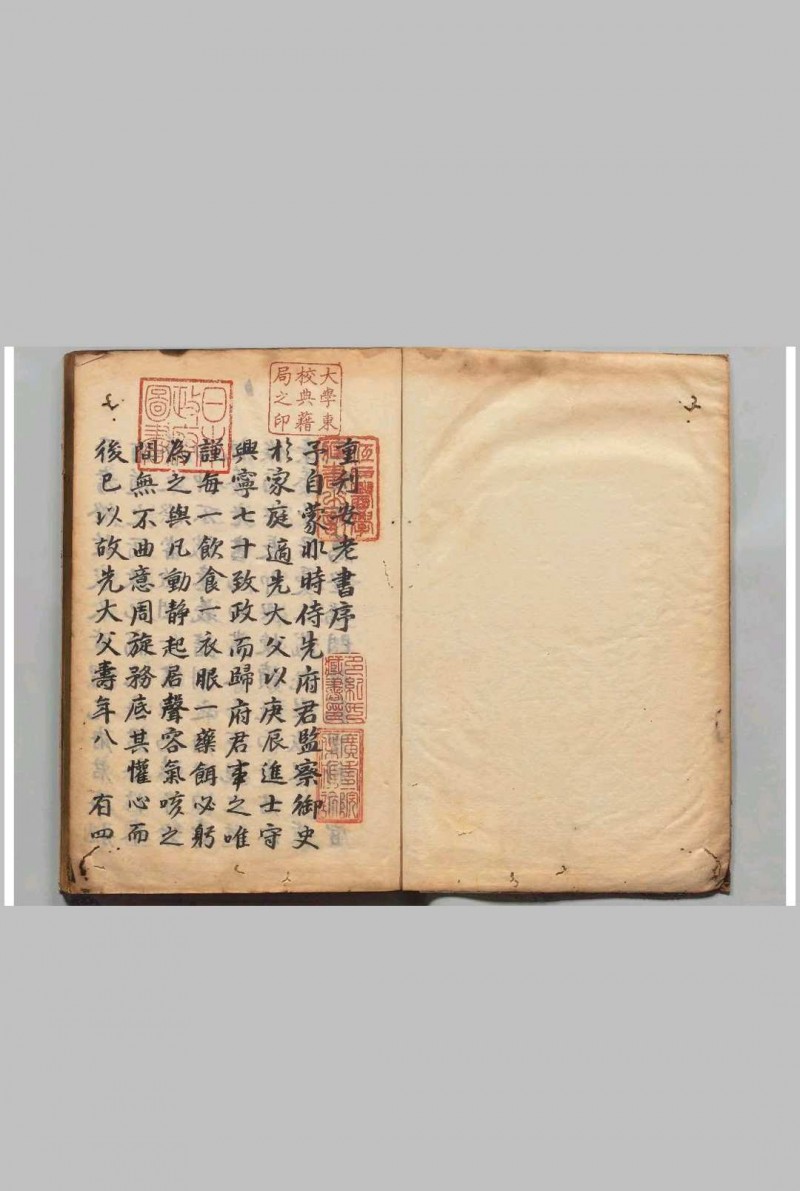 重刋安老書序
予自蒙丱時侍先府君監察御史
於家庭適先大父以庚辰進士守
興寧七十致政而歸府君事之唯
謹每一飲食一衣服一藥餌必躬
為之與凡動靜起居聲容氣咳之
間無不曲意周旋務底其懽心而
後已以故先大父壽年八 有四
大學東
校典籍
局之印
日本
政府
圖書